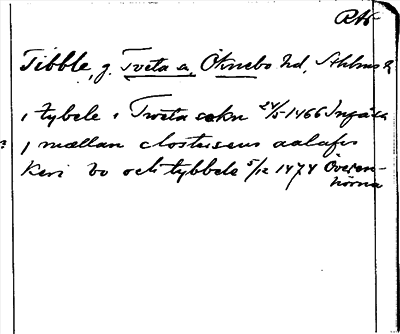 RAp
Tibble, g. Tveta sn, Öknebo hd, Sthlms l.
i tybele i Tweta sokn 24/5 1466 Ingåsa
? j mællan closterens aalafis
keri bo och tybbele 5/12 1474 Överen-
hörna